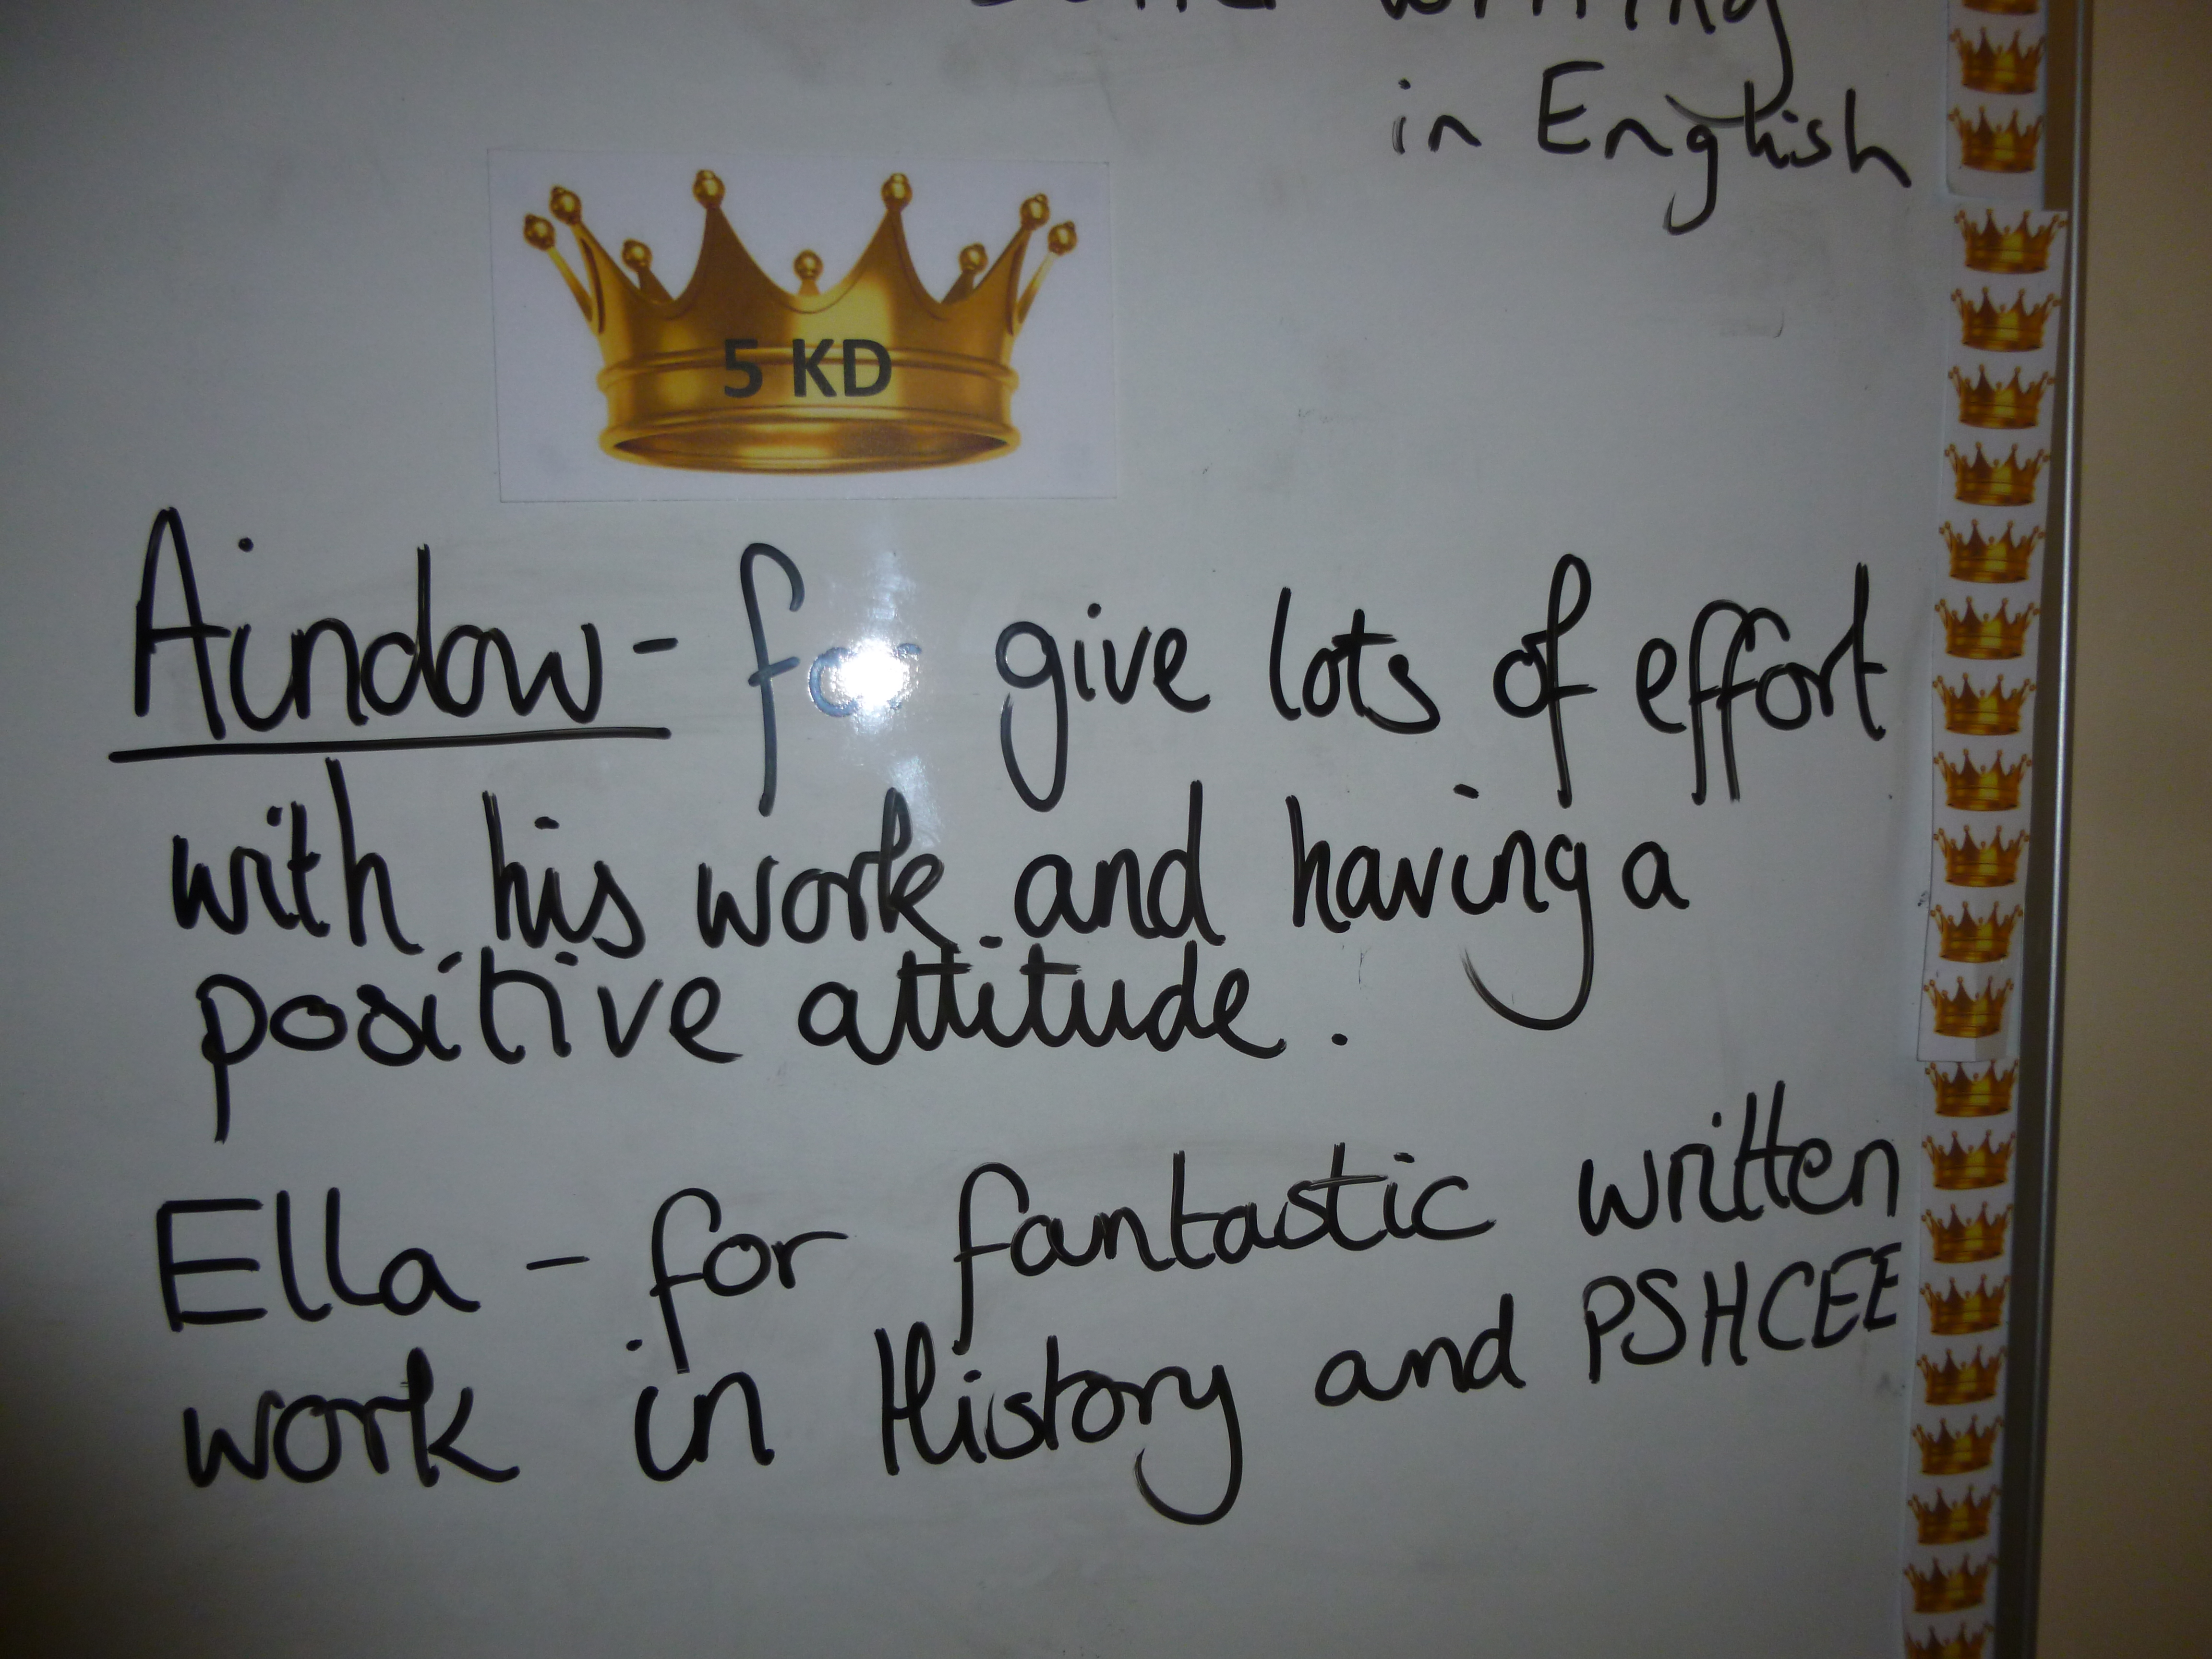 writing
in English
5 KD
Aindow - for give lots of effort
with his work and having a
positive attitude.
Ella - for fantastic written
work in History and PSHCEE